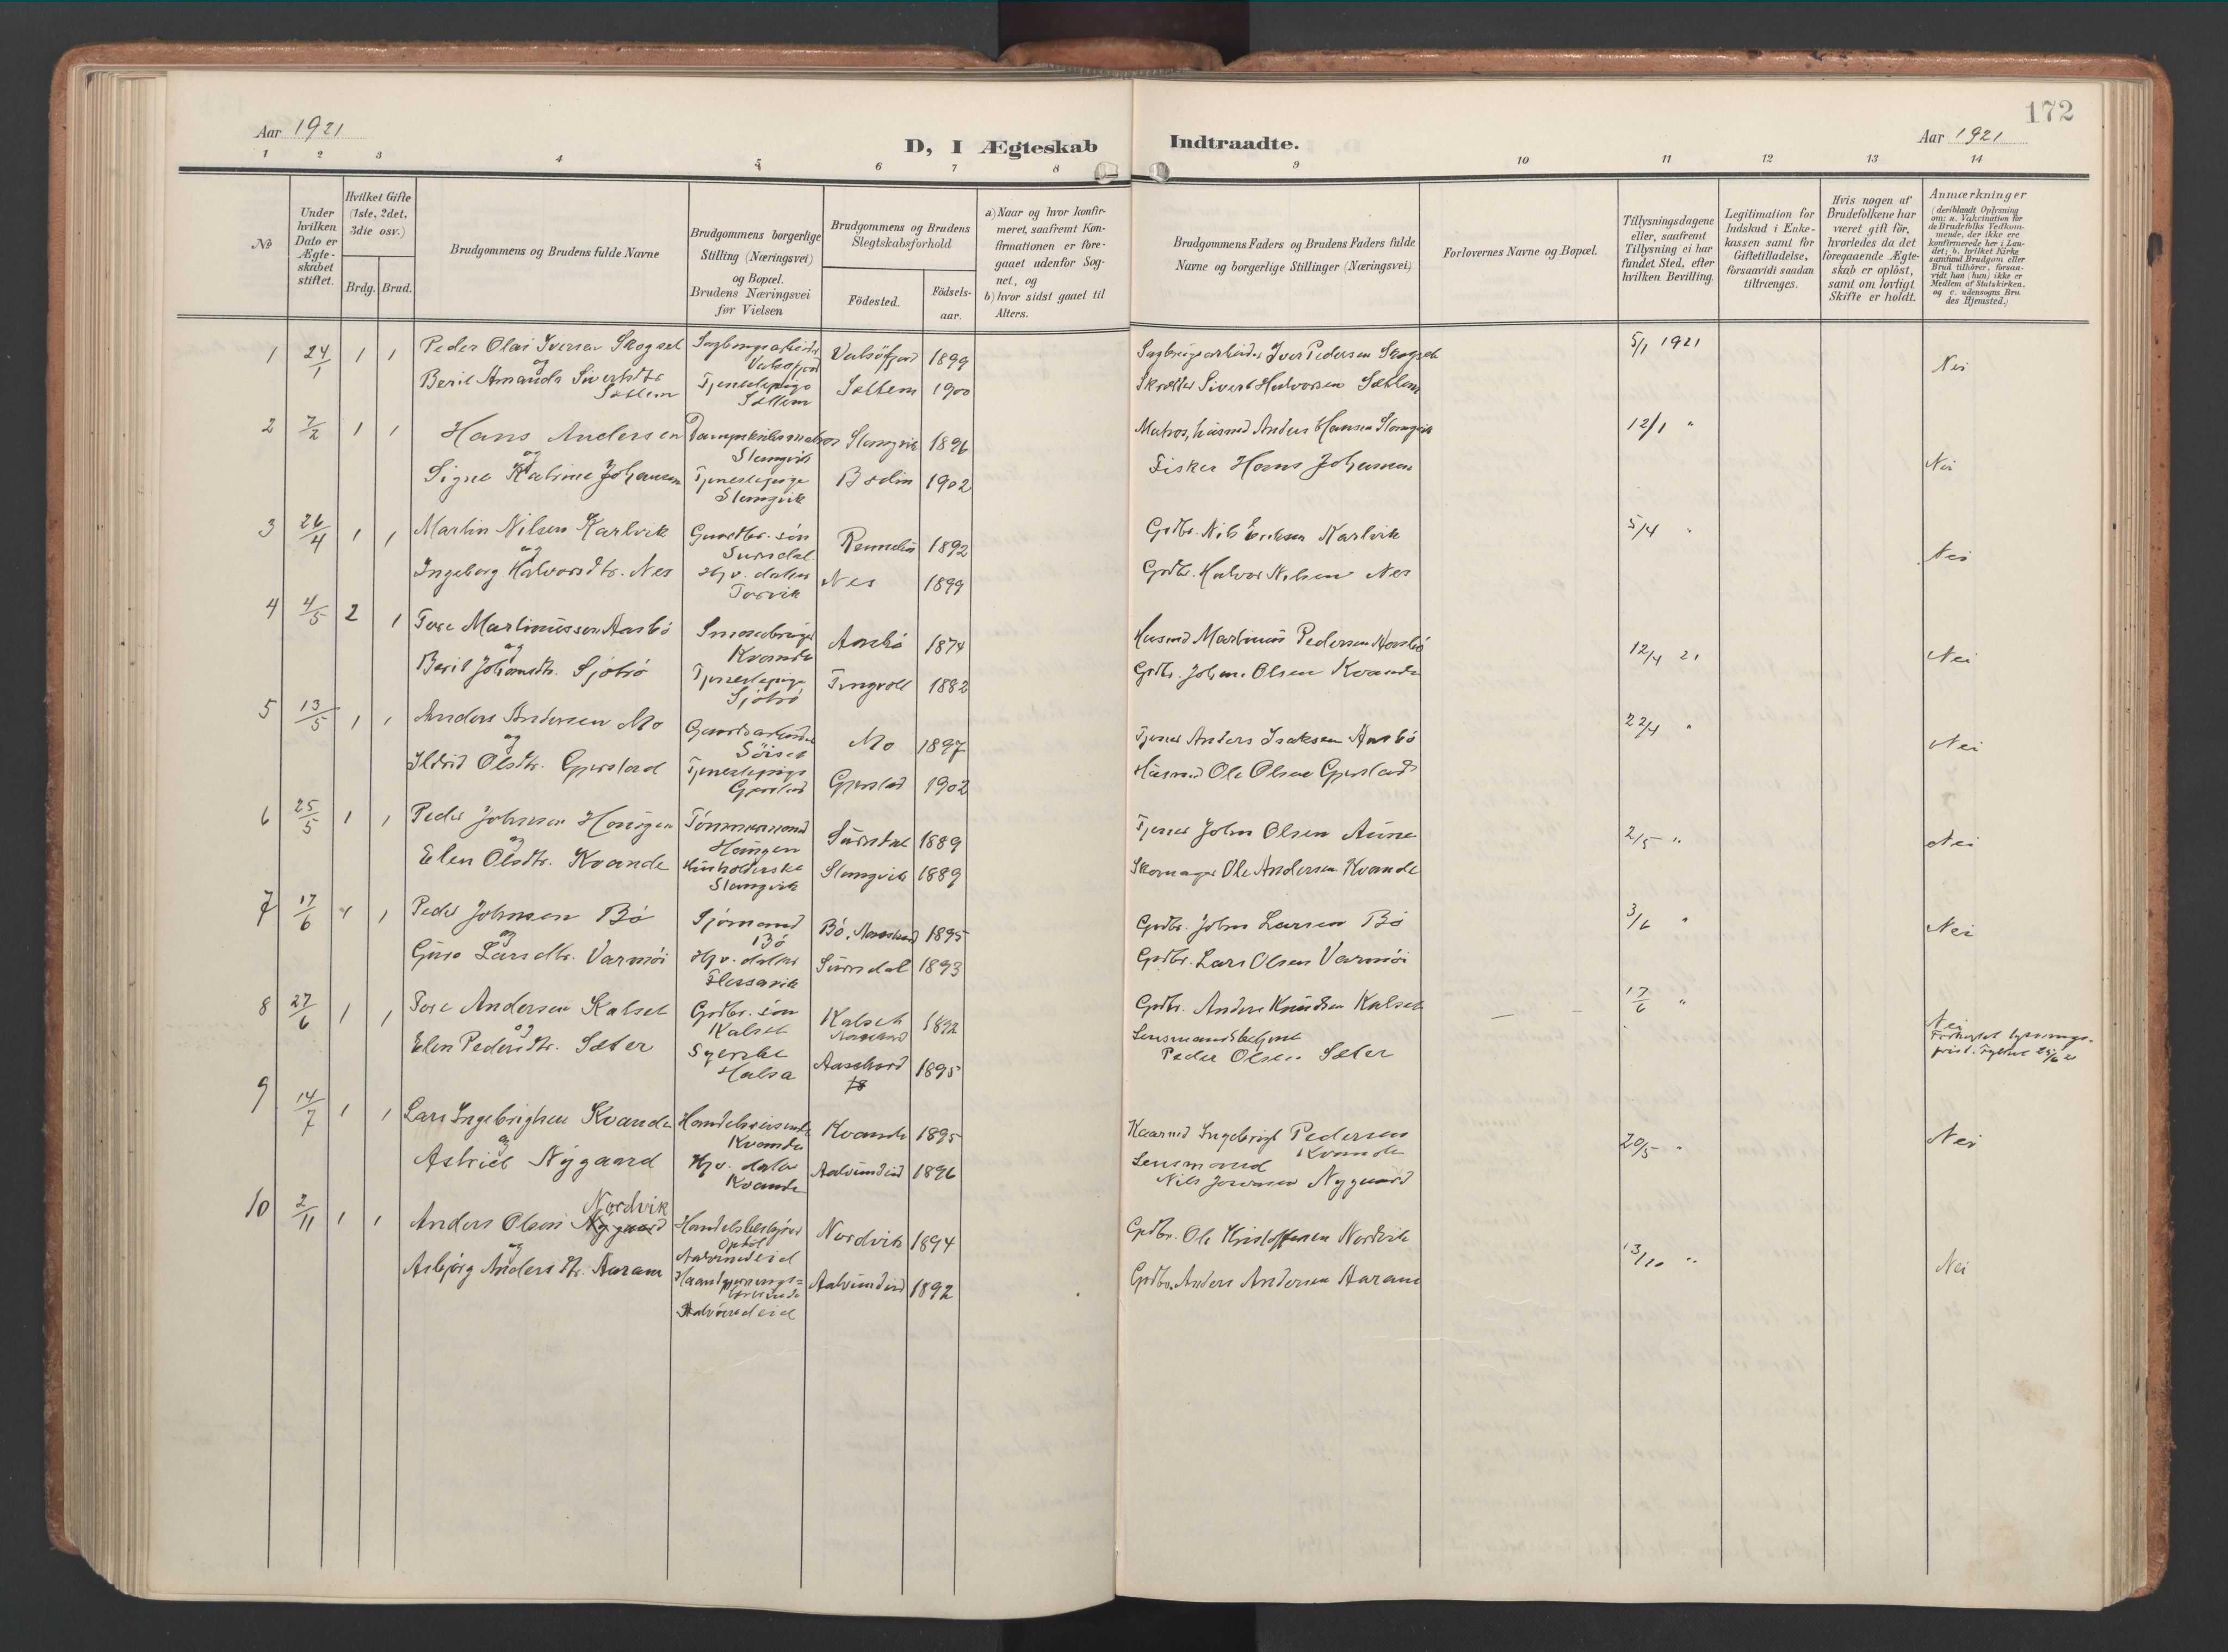 172
Aar 1921
D, I Ægteskab Indtraadte.
Aar 1921
1 2 3 4 5 6 7 8 9 10 11 12 13 14
No
Under hvilken Dato er Ægteskabet stiftet.
Hvilket Gifte (1ste, 2det, 3die osv.)
Brdg. Brud.
Brudgommens og Brudens fulde Navne
Brudgommens borgerlige Stilling (Næringsvei) og Bopæl. Brudens Næringsvei før Vielsen
Brudgommens og Brudens Slegtskabsforhold
Fødested. Fødselsaar.
a) Naar og hvor konfirmeret, saafremt Konfirmationen er foregaaet udenfor Sognet, og
b) hvor sidst gaaet til Alters.
Brudgommens Faders og Brudens Faders fulde Navne og borgerlige Stillinger (Næringsvei)
Forlovernes Navne og Bopæl.
Tillysningsdagene eller, saafremt Tillysning ei har fundet Sted, efter hvilken Bevilling.
Legitimation for Indskud i Enkekassen samt for Giftetilladelse, forsaavidt saadan tiltrænges.
Hvis nogen af Brudefolkene har været gift før, hvorledes da det foregaaende Ægteskab er opløst, samt om lovligt Skifte er holdt.
Anmærkninger
(deriblandt Oplysning om: a. Vakcination for de Brudefolks Vedkommende, der ikke ere konfirmerede her i Landet; b. hvilket Kirkesamfund Brudgom eller Brud tilhører, forsaavidt han (hun) ikke er Medlem af Statskirken, og c. udensogns Brudes Hjemsted.)
1 24/1 1 1 Peder Olai Iversen Skogset Sagbrugsarbeider Valsöfjord 1899 Sagbrugsarbeider Iver Pedersen Skogset 5/1 1921 Nei
og
Berit Amanda Sivertsdtr Sættem Tjenestepige Sættem Sættem 1900 Skrædder Sivert Halvorsen Sættem
2 7/2 1 1 Hans Andersen Dampskibsmatros Stangvik 1896 Matros, husmd Anders Hansen Stangvik 12/1 " Nei
og
Signe Katrine Johansen Tjenestepige Stangvik Bodin 1902 Fisker Hans Johansen
3 26/4 1 1 Martin Nilsen Karlvik Gaardbr. sön Surndal 1892 Grdbr. Nils Eriksen Karlvik 5/4 " Nei
og
Ingeborg Halvorsdtr. Nes Hjv. datter Torvik Nes 1899 Grdbr. Halvor Nilsen Nes
4 4/5 2 1 Tore Martinussen Aasbö Kvande Aasbö 1874 Husmd Martinus Pedersen Aasbö 12/4 21 Nei
og
Berit Johansdtr. Sjöbö Tjenestepige Sjöbö Tingvoll 1882 Grdbr. Johan Olsen Kvande
5 13/5 1 1 Anders Andersen Mo Gaardsarbeider Söiset Mo 1897 Tjener Anders Isaksen Aasbö 22/4 " Nei
og
Ildrid Olsdtr. Gjerstad Tjenestepige Gjerstad Gjerstad 1902 Husmd Ole Olsen Gjerstad
6 25/5 1 1 Peder Johnsen Haugen Tömmermand Haugen Surndal 1889 Tjener John Olsen Aune 2/5 " Nei
og
Elen Olsdtr. Kvande Husholderske Stangvik Stangvik 1889 Skomager Ole Andersen Kvande
7 17/6 1 1 Peder Johnsen Bö Sjömand Bö Bö, 1895 Grdbr. John Larsen Bö 3/6 " Nei
og
Guro Larsdtr. Varmöi Hjv. datter Surndal 1893 Grdbr. Lars Olsen Varmöi
8 27/6 1 1 Tore Andersen Kalset Grdbr. sön Kalset Kalset 1892 Grdbr. Anders Knudsen Kalset 17/6 " Nei
og
Elen Pedersdtr. Sæter Syerske Halsa Aasskard 1895 Lensmandsbetjent Peder Olsen Sæter
9 14/7 1 1 Lars Ingebrigtsen Kvande Handelsreisende Kvande Kvande 1895 Kaarmd Ingebrigt Pedersen Kvande 20/5 " Nei
og
Astrid Nygaard Hjv. datter Kvande Aalvundeid 1896 Lensmand Nils Nygaard
10 2/11 1 1 Anders Olsen Nygaard Nordvik Handelsbestyrer Aalvundeid Nordvik 1894 Grdbr. Ole Kristoffersen Nordvik 13/10 " Nei
og
Asbjörg Andersdtr. Aaram Aalvundeid Aalvundeid 1892 Grdbr. Anders Andersen Aaram